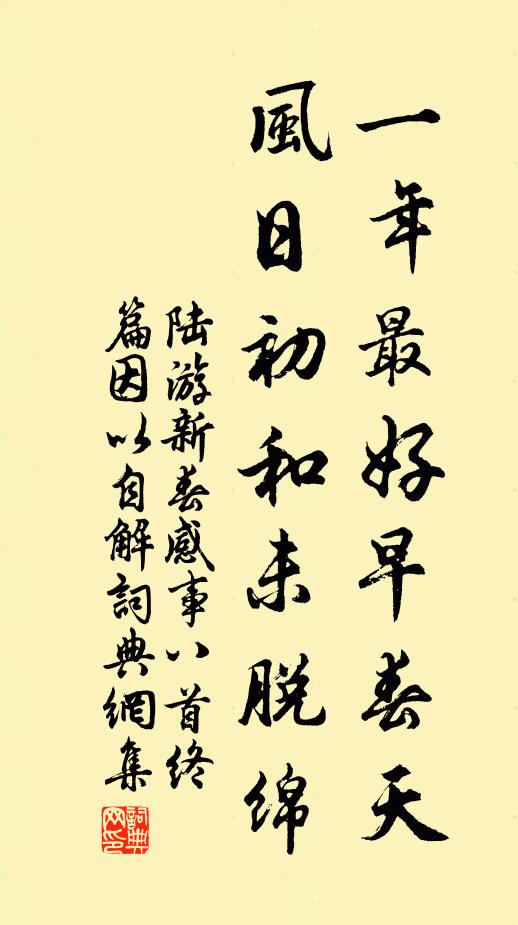 一年最好早春天
風日初和未脱綿
陆游新春感事八首终
篇因以自解詞典網集
詞典
网印